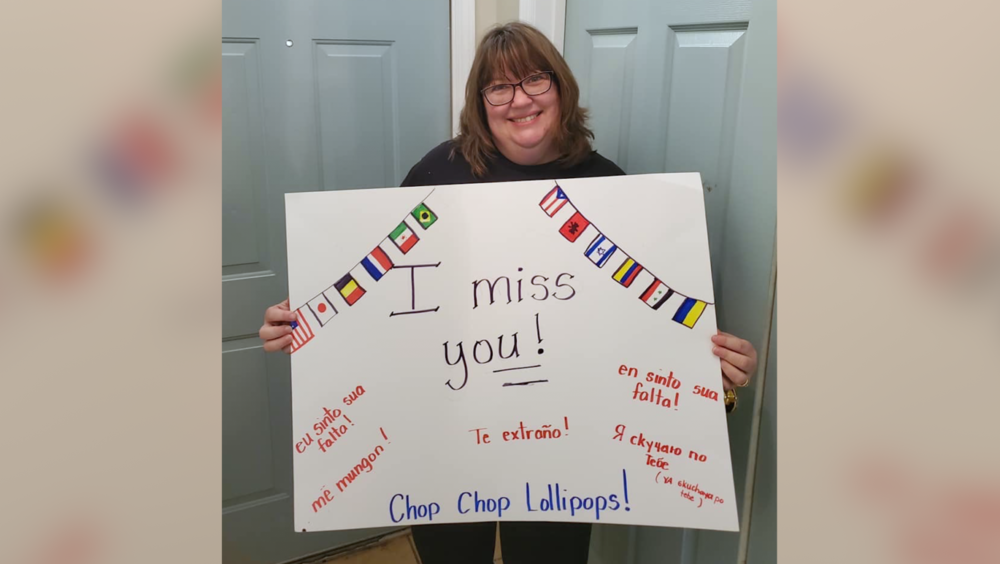 I miss
you!
eu sinto sua
falta!
më mungon!
Te extraño!
en sinto sua
falta!
Я скучаю по
Тебе
(ya skuchaya po
tebe)
Chop Chop Lollipops!